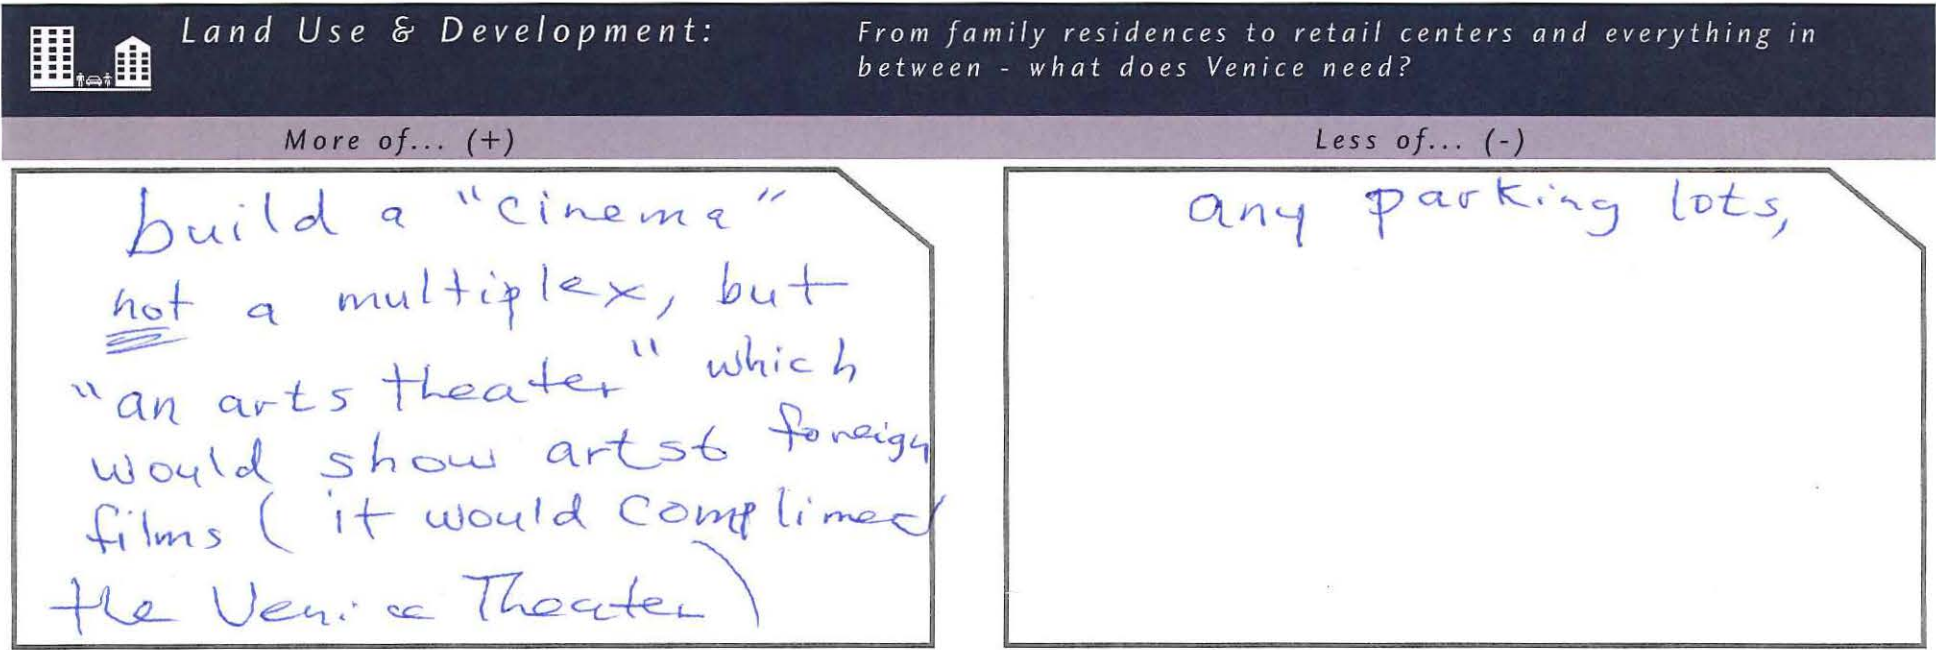 Land Use & Development:
From family residences to retail centers and everything in
between - what does Venice need?
More of... (+)
Less of... (-)
build a "cinema"
not a multiplex, but
"an arts theater" which
would show arts & foreign
films ( it would compliment
the Venice Theater)
any parking lots,